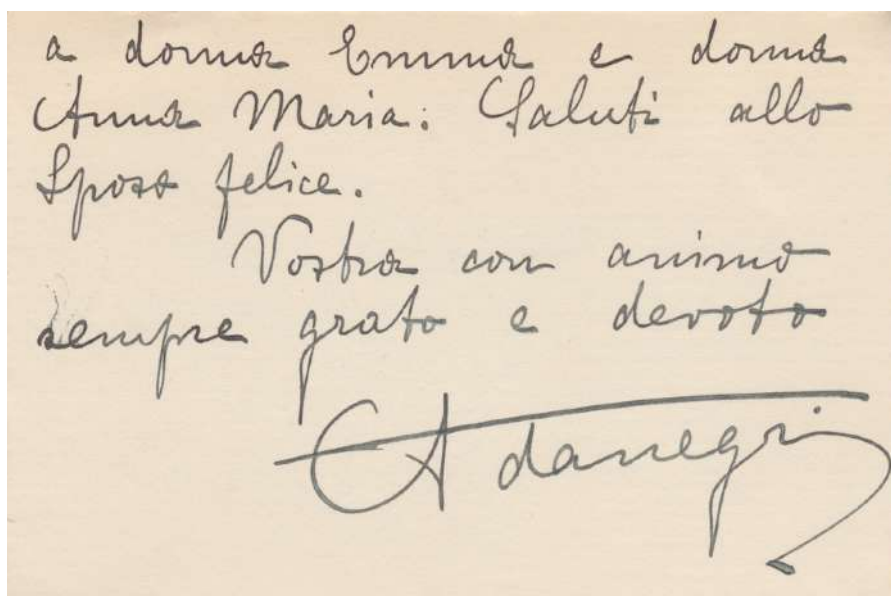 a donna Emma e donna
Anna Maria. Saluti allo
Sposo felice.
Vostra con animo
sempre grato e devoto
Adanegri